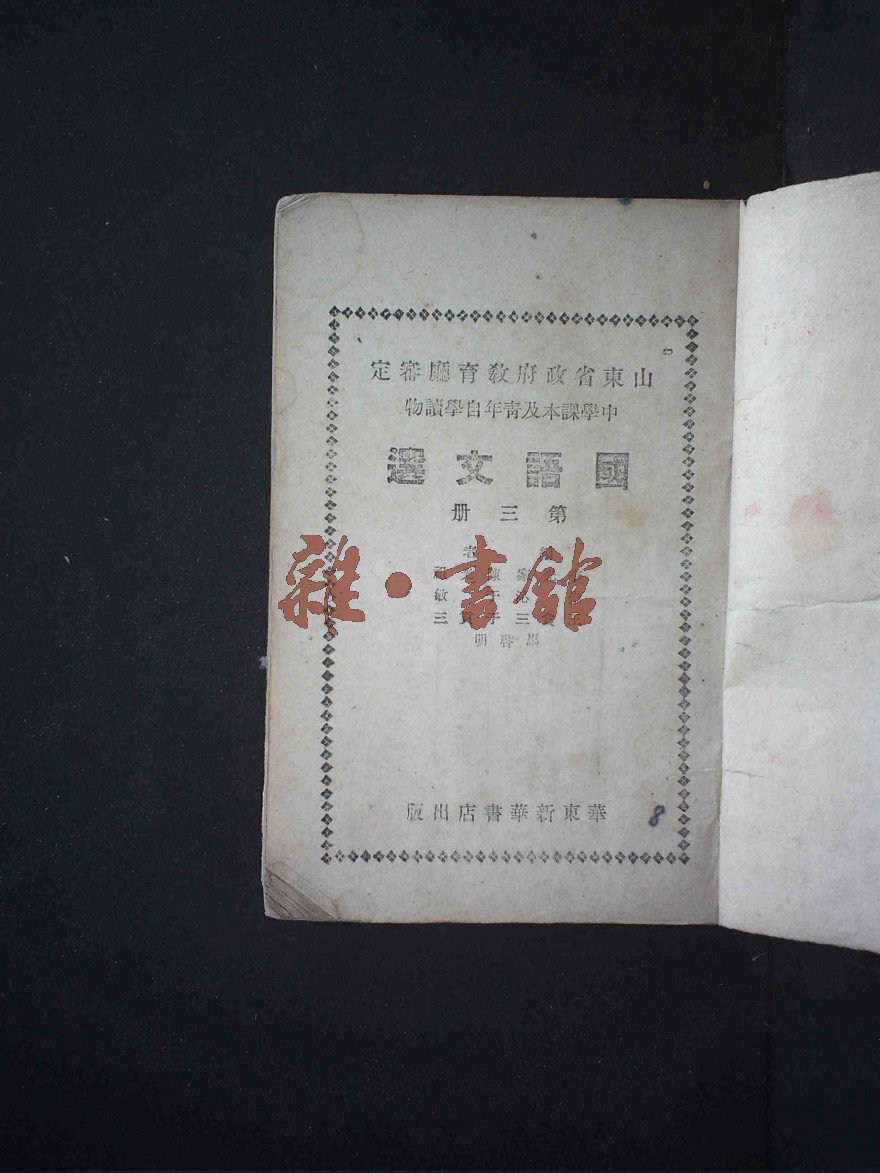 山東省政府教育廳審定
中學課本及青年自學讀物
國語文選
第三册
者
陳
敏
三于
三
馬啓明
華東新華書店出版
8
雜·書舘